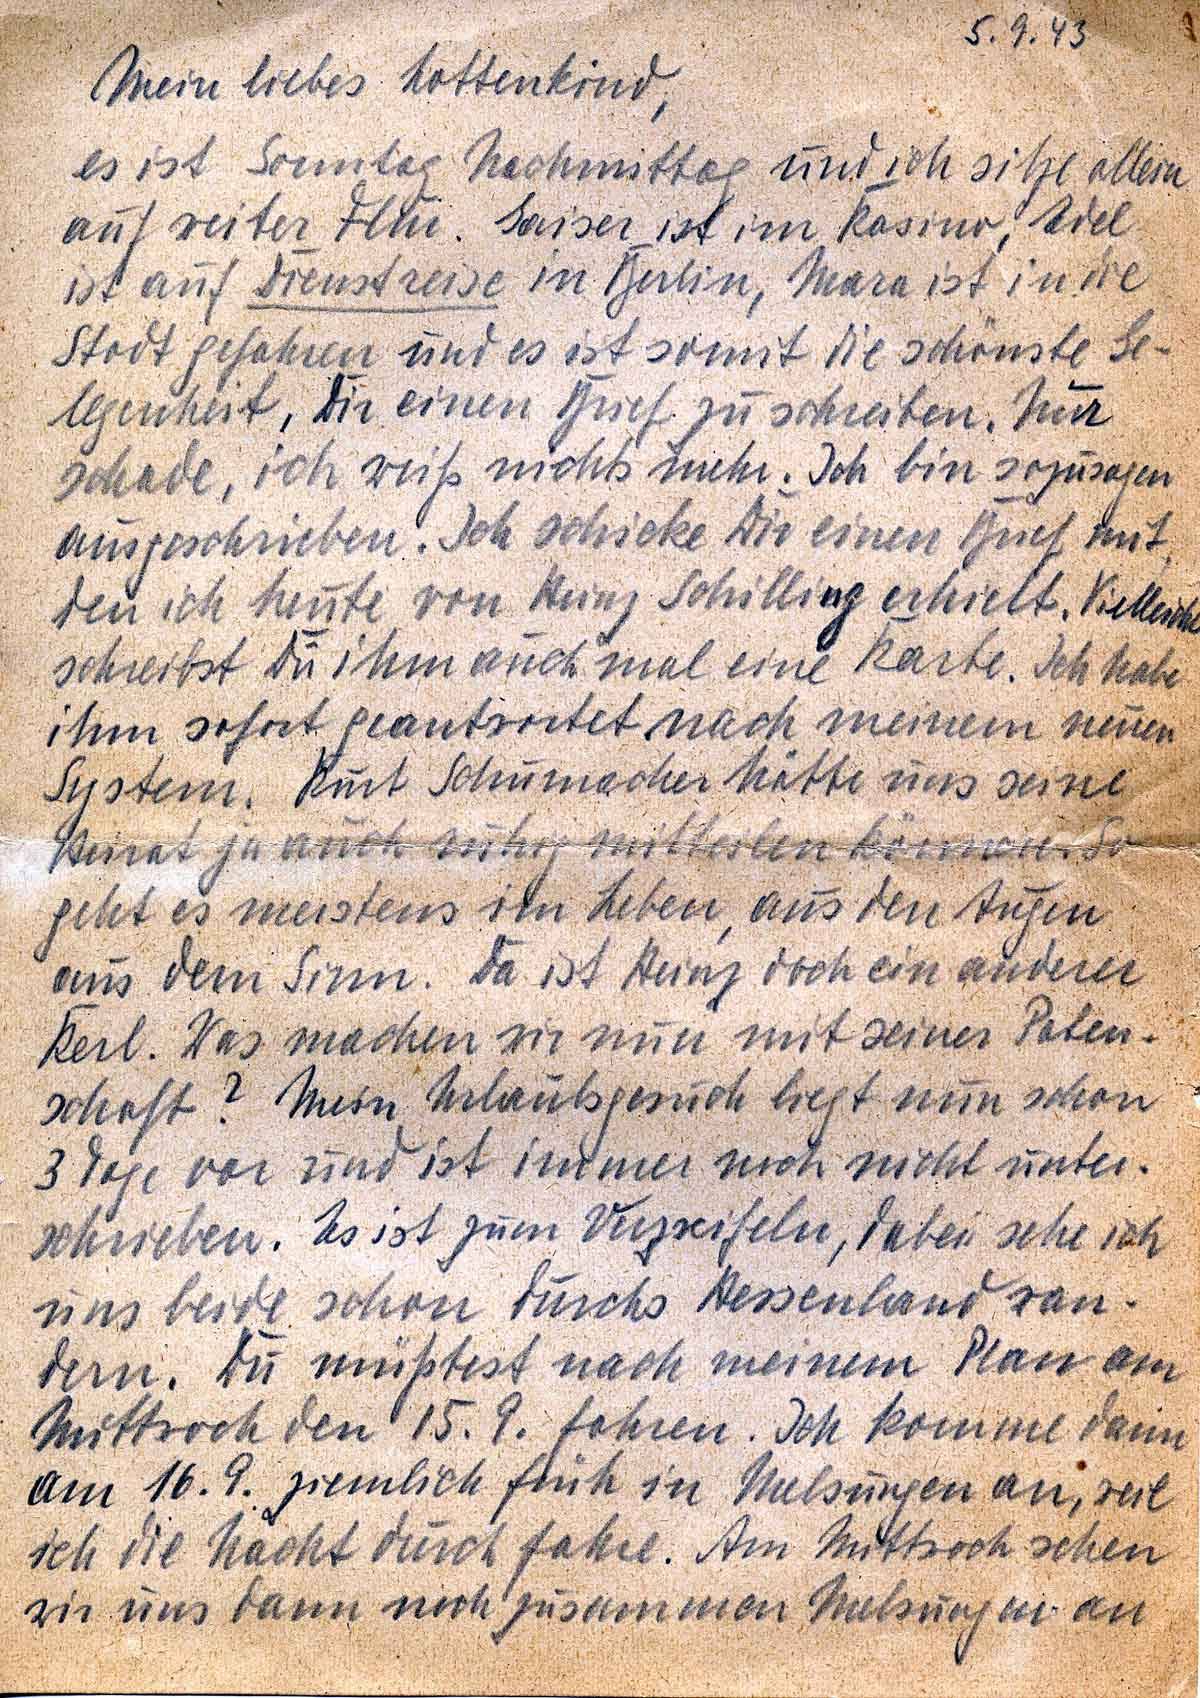 5.9.43
Mein liebes Lottenkind,
es ist Sonntag Nachmittag und ich sitze allein
auf weiter Flur. Gaiser ist im Kasino, Edel
ist auf Dienstreise in Berlin, Mara ist in die
Stadt gefahren und es ist somit die schönste Ge-
legenheit, Dir einen Brief zu schreiben. Nur
schade, ich weiß nichts mehr. Ich bin sozusagen
ausgeschrieben. Ich schicke Dir einen Brief mit,
den ich heute von Heinz Schilling erhielt. Vielleicht
schreibst Du ihm auch mal eine Karte. Ich habe
ihm sofort geantwortet nach meinem neuen
System. Kurt Schumacher hätte uns seine
Heirat ja auch ruhig mitteilen können. So
geht es meistens im Leben, aus den Augen
aus dem Sinn. Da ist Heinz doch ein anderer
Kerl. Was machen wir nun mit seiner Paten-
schaft? Mein Urlaubsgesuch liegt nun schon
3 Tage vor und ist immer noch nicht unter-
schrieben. Es ist zum Verzweifeln, dabei sehe ich
uns beide schon durchs Hessenland wan-
dern. Du müßtest nach meinem Plan am
Mittwoch den 15.9. fahren. Ich komme dann
am 16.9. ziemlich früh in Melsungen an, weil
ich die Nacht durch fahre. Am Mittwoch sehen
wir uns dann noch zusammen Melsungen an